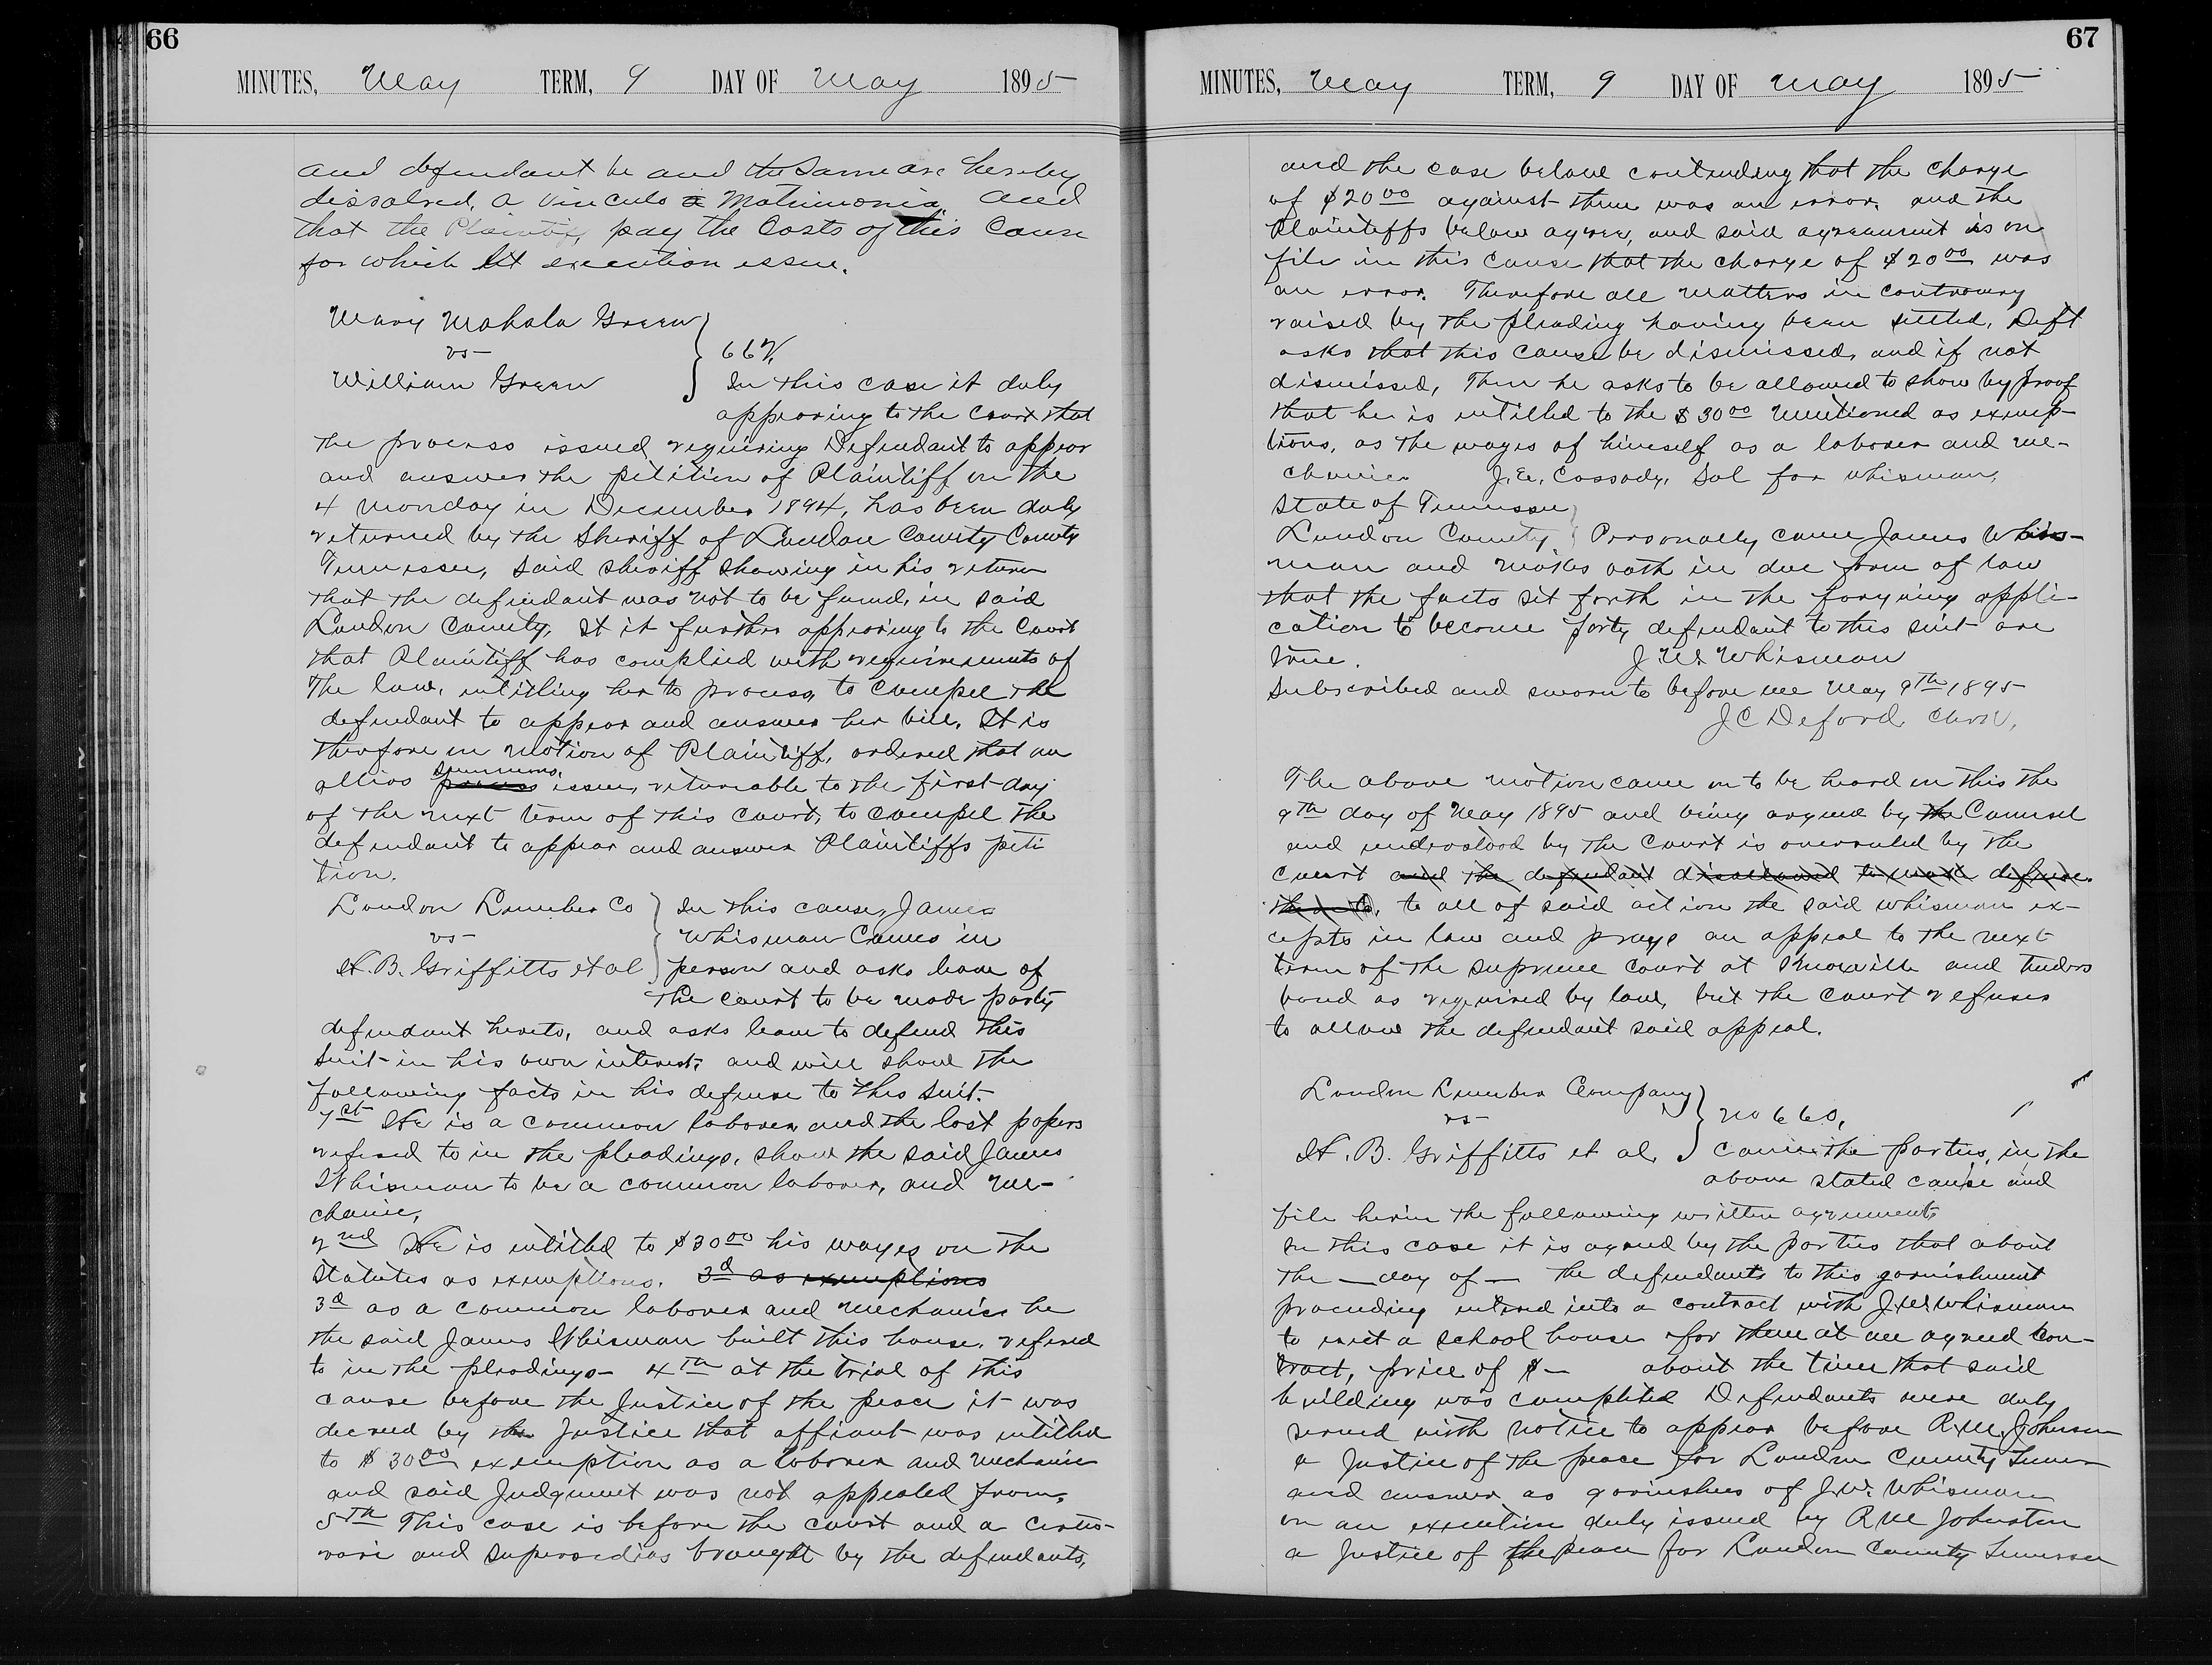 66
MINUTES, May TERM, 9 DAY OF May 1895
and defendant be and the same are hereby
dissolved, a vinculo a Matrimonia, and
that the Plaintiff, pay the Costs of this Cause
for which let execution issue.
Mary Mahala Green
vs
William Green
667,
In this case it duly
appearing to the Court that
the process issued requiring Defendant to appear
and answer the petition of Plaintiff on the
4 Monday in December 1894, has been duly
returned by the Sheriff of Loudon County County
Tennessee, Said Sheriff showing in his return
that the defendant was not to be found, in said
Loudon County, It it further appearing to the Court
that Plaintiff has complied with requirements of
The law, intitling her to process, to compel the
defendant to appear and answer her bill. It is
therefore on motion of Plaintiff, ordered that an
allias process summons, issue, returnable to the first day
of the next term of this Court, to compel the
defendant to appear and answer Plaintiffs peti
tion.
Loudon Lumber Co
vs
H. B. Griffitts et al
In this cause, James
Whisman Comes in
person and asks leave of
the court to be made party
defendant hereto, and asks leave to defend this
suit in his own interest, and will show the
following facts in his defense to this suit.
1st He is a common laborer and the lost papers
refered to in the pleadings, show the said James
Whisman to be a common laborer, and me-
chanic,
2nd He is intitled to $30.00 his wages on the
Statutes as exemptions. 3d as exemptions
3d as a common laborer and mechanic he
the said James Whisman built this house, refered
to in the pleadings - 4th at the trial of this
cause before the Justice of the peace it was
decreed by the Justice that affiant was intitled
to $30.00 exemption as a laborer and mechanic
and said Judgment was not appealed from.
5th This case is before the court and a certio-
rari and supersedias brought by the defendants,
67
MINUTES, May TERM, 9 DAY OF May 1895
and the case below contending that the charge
of $20.00 against them was an error. and the
Plaintiffs below agree, and said agreement is on
file in this cause that the charge of $20.00 was
an error. Therefore all matters in controversy
raised by the pleading having been settled, Deft
asks that this cause be dismissed, and if not
dismissed, Then he asks to be allowed to show by proof
that he is intitled to the $30.00 mentioned as exemp-
tions, as the wages of himself as a laborer and me-
chanic. J. E. Cassady, Sol for Whisman,
State of Tennessee
Loudon County Personally came James Whis-
man and makes oath in due form of law
that the facts set forth in the forgoing appli-
cation to become party defendant to this suit are
true. J W Whisman
Subscribed and sworn to before me May 9th 1895
J C Deford Clerk,
The above motion came on to be heard on this the
9th day of May 1895 and being argued by the Counsel
and understood by the Court is overruled by the
court and the defendant disallowed to make defense
to all of said action the said Whisman ex-
cepts in law and prays an appeal to the next
term of the Supreme Court at Knoxville and tenders
bond as required by law, but the court refuses
to allow the defendant said appeal.
Loudon Lumber Company
vs
H. B. Griffitts et al.
no 660,
Came the parties, in the
above stated cause and
file herein the following written agreement,
In this case it is agreed by the parties that about
the — day of — the defendants to this garnishment
proceeding entered into a contract with J. W. Whisman
to erect a school house for them at an agreed con-
tract, price of $ — about the time that said
building was completed Defendants were duly
served with notice to appear before R. M. Johnson
a Justice of the peace for Loudon County Tenn
and answer as garnishees of J. W. Whisman
on an execution duly issued by R M Johnston
a Justice of the peace for Loudon County Tennessee